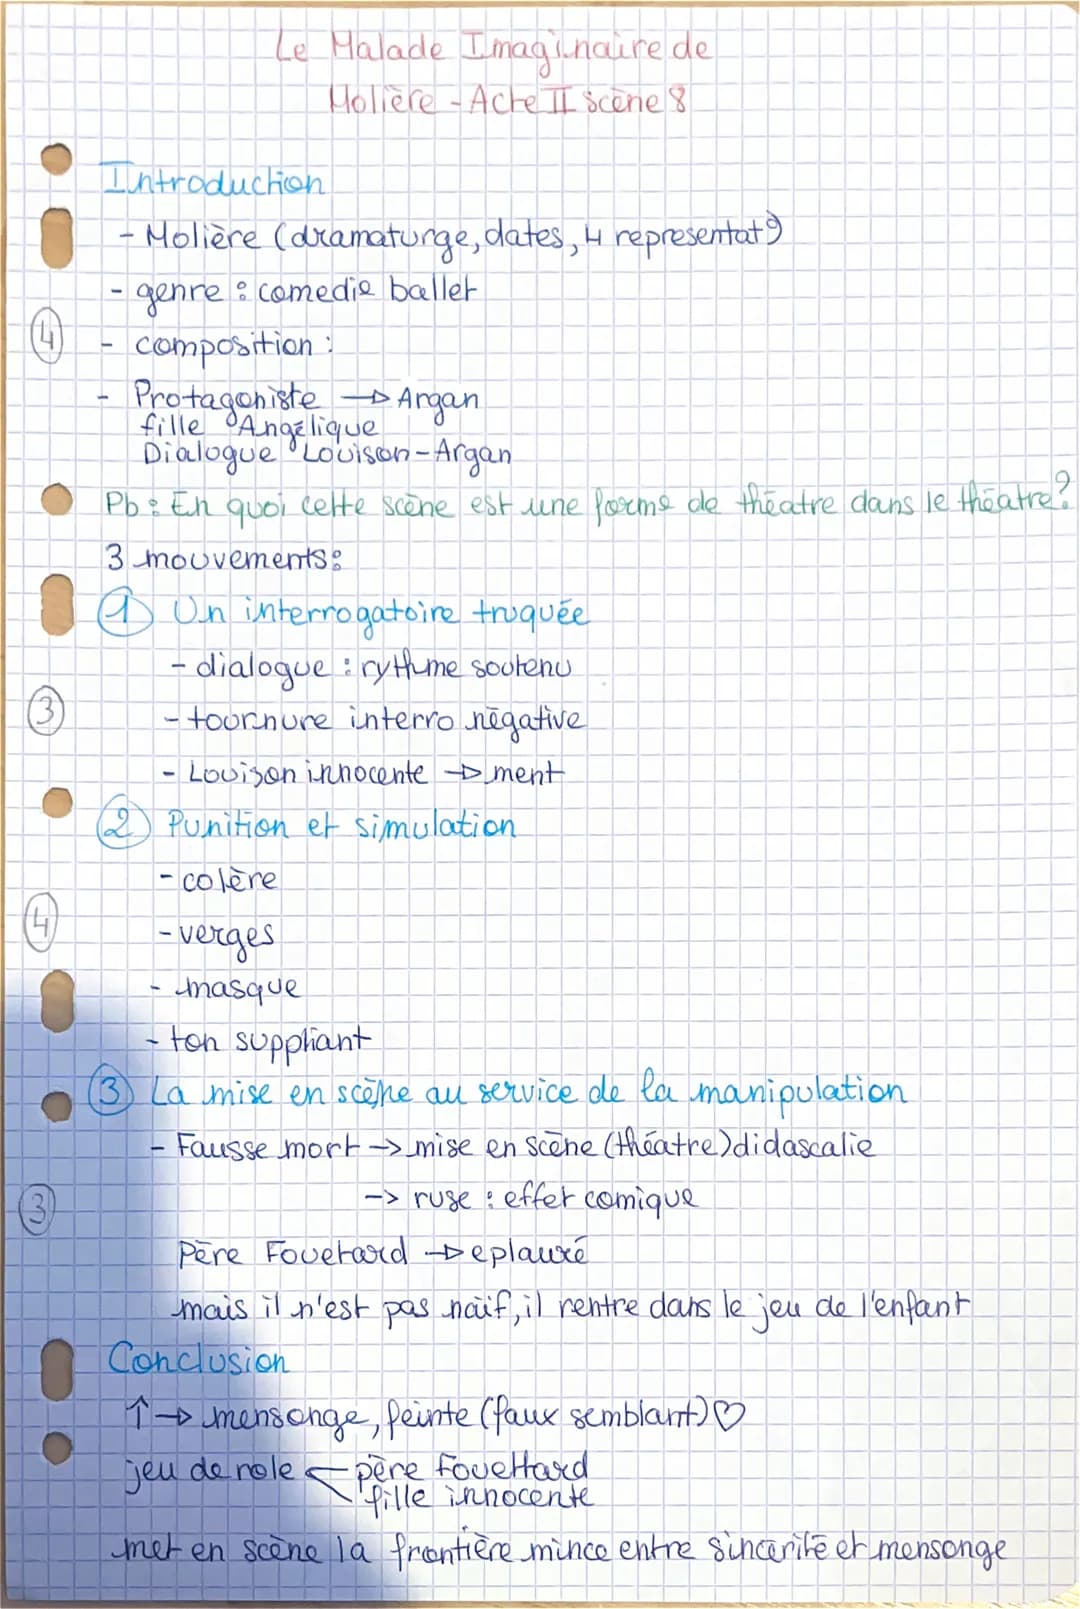 Le Malade Imaginaire de
Molière - Acte II scène 8
Introduction
- Molière (dramaturge, dates, 4 representat°)
- genre : comedie ballet
4
- composition :
- Protagoniste → Argan
fille Angélique
Dialogue Louison-Argan
Pb : En quoi cette scène est une forme de théatre dans le théatre ?
3 mouvements :
1 Un interrogatoire truquée
- dialogue : rythme soutenu
3
- tournure interro négative
- Louison innocente → ment
2 Punition et simulation
- colère
4
- verges
- masque
- ton suppliant
3 La mise en scène au service de la manipulation
- Fausse mort → mise en scène (théatre) didascalie
3
→ ruse : effet comique
Père Fouetard → eplauré
mais il n'est pas naïf, il rentre dans le jeu de l'enfant
Conclusion
↑ → mensonge, feinte (faux semblant) ♡
jeu de role ← père Fouettard
fille innocente
met en scène la frontière mince entre sincerité et mensonge